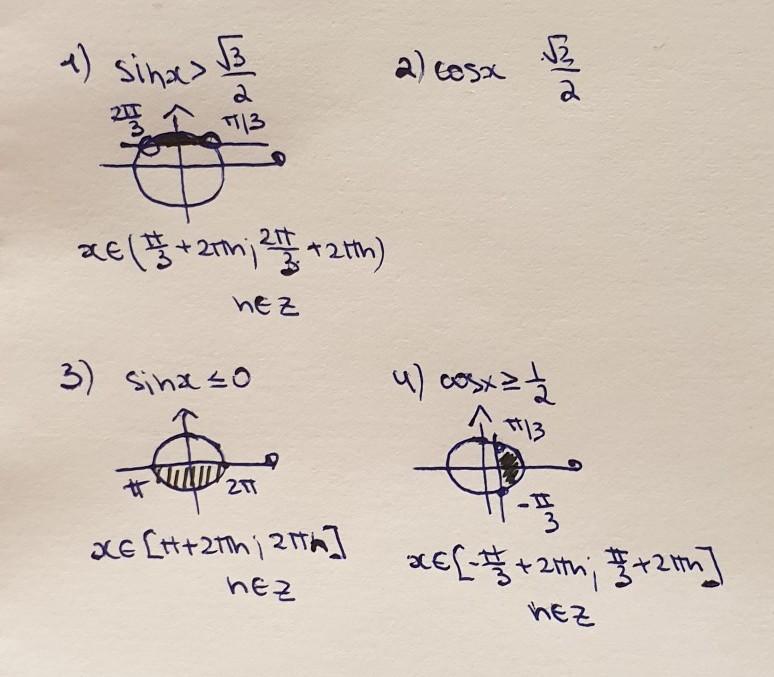 1) sinx > √3/2
2π/3 π/3
x∈(π/3 + 2πn; 2π/3 + 2πn)
n∈Z
2) cosx √2/2
3) sinx ≤ 0
π 2π
x∈[π+2πn; 2πn]
n∈Z
4) cosx ≥ 1/2
π/3
-π/3
x∈[-π/3 + 2πn; π/3 + 2πn]
n∈Z